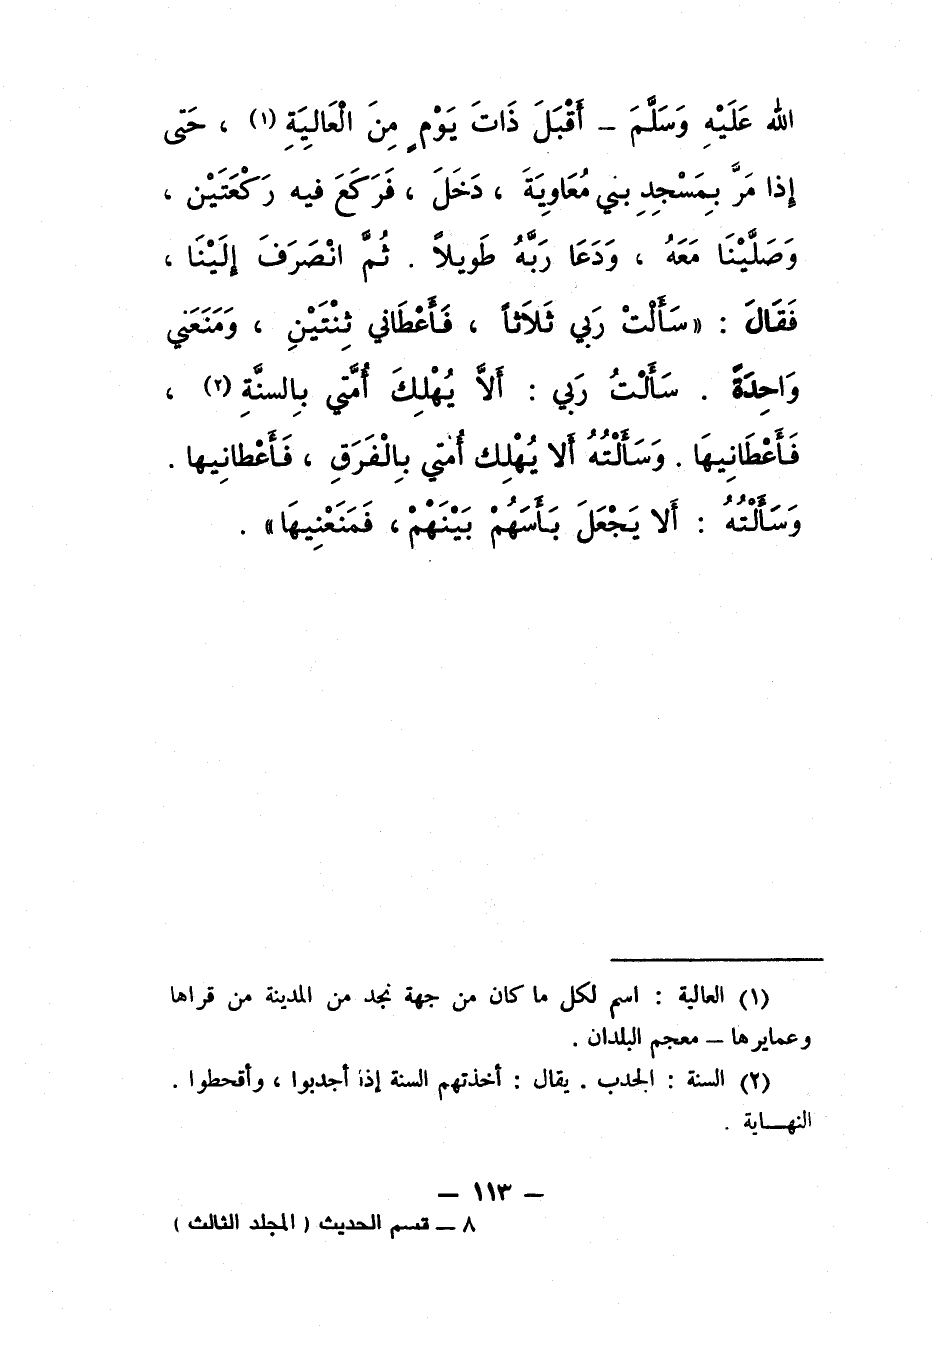 الله عَلَيْهِ وَسَلَّمَ – أَقْبَلَ ذَاتَ يَوْمٍ مِنَ الْعَالِيَةِ (١) ، حَتى
إذا مَرَّ بِمَسْجِدِ بني مُعَاوِيَةَ ، دَخَلَ ، فَرَكَعَ فيه رَكْعَتَيْن ،
وَصَلَّيْنَا مَعَهُ ، وَدَعَا رَبَّهُ طَويلاً . ثُمَّ انْصَرَفَ إلَيْنَا ،
فَقَالَ : «سَأَلْتْ رَبي ثَلاَثاً ، فَأَعْطَاني ثِنْتَيْنِ ، وَمَنَعَني
وَاحِدَةً . سَأَلْتُ رَبي : أَلاَّ يُهْلِكَ أُمَّتي بِالسنَّةِ (٢) ،
فَأَعْطَانِيهَا . وَسَأَلْتُهُ أَلا يُهْلِك أُمَتي بِالْفَرَقِ ، فَأَعْطانِيها .
وَسَأَلْتُهُ : أَلا يَجْعَلَ بَأسَهُمْ بَيْنَهْمْ ، فَمَنَعْنِيهَا» .
(١) العالية : اسم لكل ما كان من جهة نجد من المدينة من قراها
وعمايرها – معجم البلدان .
(٢) السنة : الجدب . يقال : أخذتهم السنة إذا أجدبوا ، وأقحطوا .
النهـــاية .
– ١١٣ –
٨ – قسم الحديث ( المجلد الثالث )